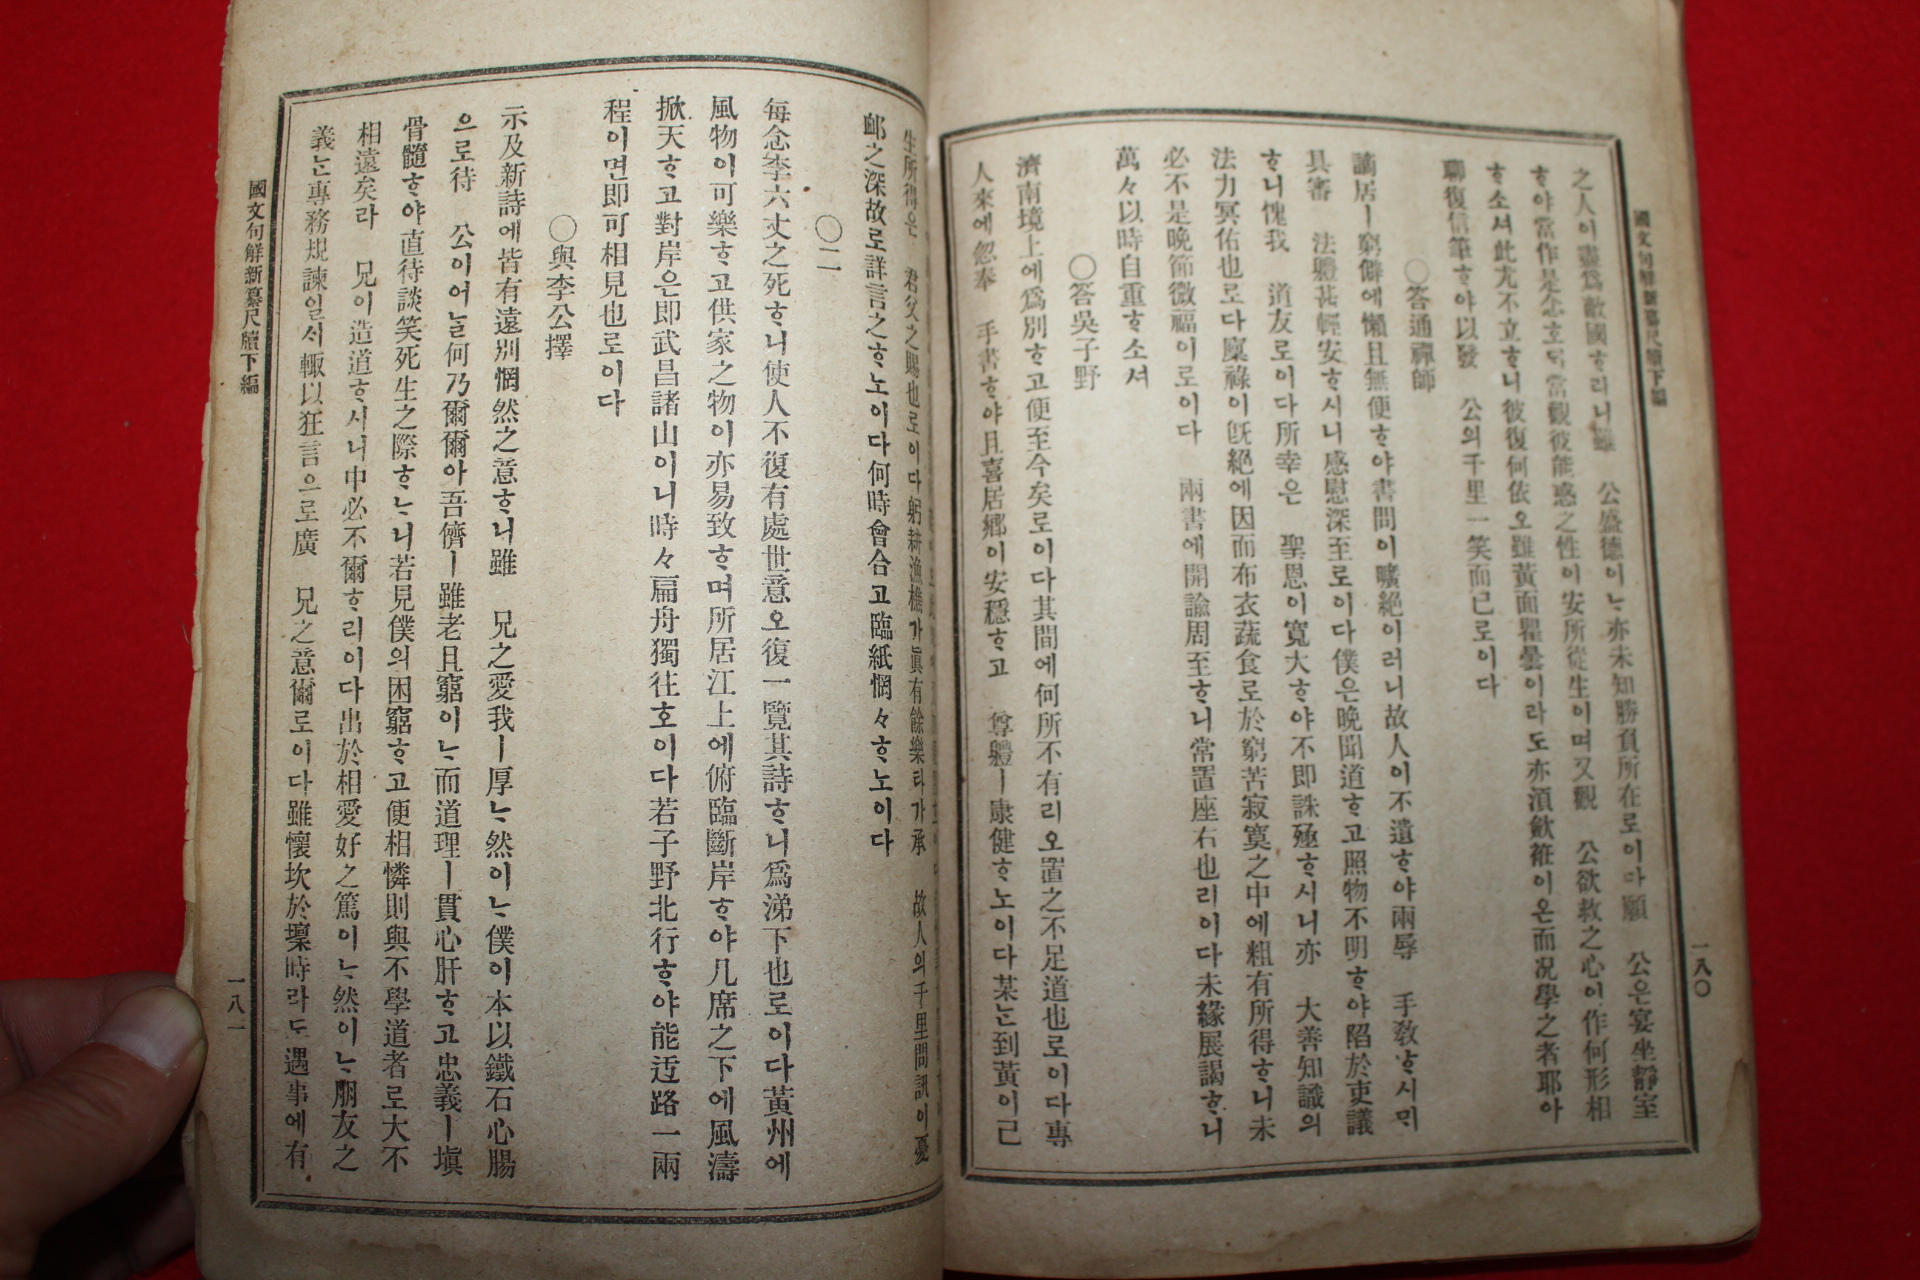 國文句解新纂尺牘下編
一八〇
之人이盡爲敵國ᄒᆞ리니雖 公盛德이ᄂᆞ亦未知勝負所在로이다願 公은宴坐靜室
ᄒᆞ야當作是念호ᄃᆡ當觀彼能惑之性이安所從生이며又觀 公欲救之心이作何形相
ᄒᆞ소셔此尤不立ᄒᆞ니彼復何依오雖黃面瞿曇이라도亦須斂袵이온而况學之者耶아
聊復信筆ᄒᆞ야以發 公의千里一笑而已로이다
〇答通禪師
謫居ㅣ窮僻에懶且無便ᄒᆞ야書問이曠絶이러니故人이不遺ᄒᆞ야兩辱 手敎ᄒᆞ시며
具審 法體甚輕安ᄒᆞ시니感慰深至로이다僕은晩聞道ᄒᆞ고照物不明ᄒᆞ야陷於吏議
ᄒᆞ니愧我 道友로이다所幸은 聖恩이寬大ᄒᆞ야不即誅殛ᄒᆞ시니亦 大善知識의
法力冥佑也로다廩祿이旣絶에因而布衣蔬食로於窮苦寂寞之中에粗有所得ᄒᆞ니未
必不是晩節微福이로이다 兩書에開諭周至ᄒᆞ니常置座右也리이다未緣展謁ᄒᆞ니
萬々以時自重ᄒᆞ소셔
〇答吳子野
濟南境上에爲別ᄒᆞ고便至今矣로이다其間에何所不有리오置之不足道也로이다專
人來에忽奉 手書ᄒᆞ야且喜居鄕이安穩ᄒᆞ고 尊體ㅣ康健ᄒᆞ노이다某ᄂᆞᆫ到黃이已
生所得은 君父之賜也로이다躬耕漁樵가眞有餘樂라가承 故人의千里問訊이憂
卹之深故로詳言之ᄒᆞ노이다何時會合고臨紙惘々ᄒᆞ노이다
〇二
每念李六丈之死ᄒᆞ니使人不復有處世意오復一覽其詩ᄒᆞ니爲涕下也로이다黃州에
風物이可樂ᄒᆞ고供家之物이亦易致ᄒᆞ며所居江上에俯臨斷岸ᄒᆞ야几席之下에風濤
掀天ᄒᆞ고對岸은即武昌諸山이니時々扁舟獨往호이다若子野北行ᄒᆞ야能迂路一兩
程이면即可相見也로이다
〇與李公擇
示及新詩에皆有遠別惘然之意ᄒᆞ니雖 兄之愛我ㅣ厚ᄂᆞ然이ᄂᆞ僕이本以鐵石心腸
으로待 公이어ᄂᆞᆯ何乃爾爾아吾儕ㅣ雖老且窮이ᄂᆞ而道理ㅣ貫心肝ᄒᆞ고忠義ㅣ塡
骨髓ᄒᆞ야直待談笑死生之際ᄒᆞᄂᆞ니若見僕의困窮ᄒᆞ고便相憐則與不學道者로大不
相遠矣라 兄이造道ᄒᆞ시니中必不爾ᄒᆞ리이다出於相愛好之篤이ᄂᆞ然이ᄂᆞ朋友之
義ᄂᆞᆫ專務規諫일ᄉᆡ輒以狂言으로廣 兄之意爾로이다雖懷坎於壈時라도遇事에有
國文句解新纂尺牘下編
一八一